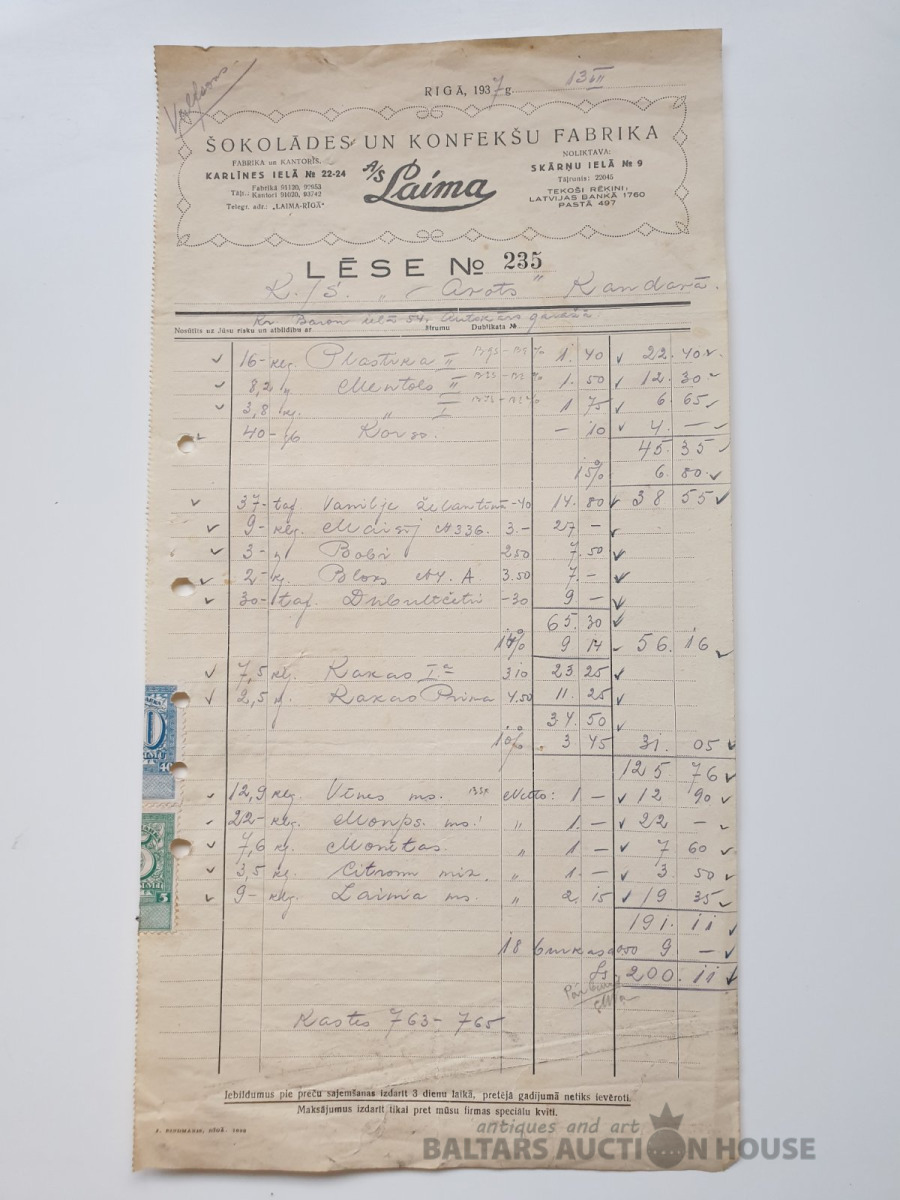 RĪGĀ, 1937 g. 13 III
ŠOKOLĀDES UN KONFEKŠU FABRIKA
FABRIKA un KANTORIS:
KARLĪNES IELĀ № 22-24
Tāļr.: Fabrikā 91120, 92953
Kantorī 91020, 93742
Telegr. adr.: „LAIMA-RĪGĀ"
A/S Laima
NOLIKTAVA:
SKĀRŅU IELĀ № 9
Tāļrunis: 22045
TEKOŠI RĒĶINI:
LATVIJAS BANKĀ 1760
PASTĀ 497
LĒSE № 235
K./S. „Avots" Kandavā.
Kr. Baron ielā 54.
Nosūtīts uz Jūsu risku un atbildību ar Strumu Dublikata №.
16- klg. Plastika II 1. 40 22. 40
8,2 " Mentols II 1. 50 12. 30
3,8 kg. " I 1 75 6 65
40- Korss. - 10 4. -
45. 35
15% 6. 80
37- taf. Vanilje -40 14. 80 38 55
9- klg. 336. 3.- 27 -
3- " Bobi 2.50 7. 50
2- kg. Bloks A 3.50 7. -
30- taf. -30 9 -
65. 30
14% 9 14 56. 16
7,5 klg. Kakao Iª 3.10 23. 25
2,5 kg. Kakao Prima 4.50 11. 25
34. 50
10% 3 45 31. 05
125 76
12,9 klg. Vīnes ms. Netto: 1 - 12 90
22- klg. Monps. ms. " 1. - 22 -
7,6 kg. " 1 - 7 60
3,5 kg. Citron mix. " 1. - 3. 50
9- klg. Laima ms. " 2. 15 19 35
191. 11
18 9 -
Ls 200. 11
Kastes 763-765
Iebildumus pie preču saņemšanas izdarīt 3 dienu laikā, pretējā gadījumā netiks ievēroti.
Maksājumus izdarīt tikai pret mūsu firmas speciālu kvīti.
antiques and art
BALTARS AUCTION HOUSE